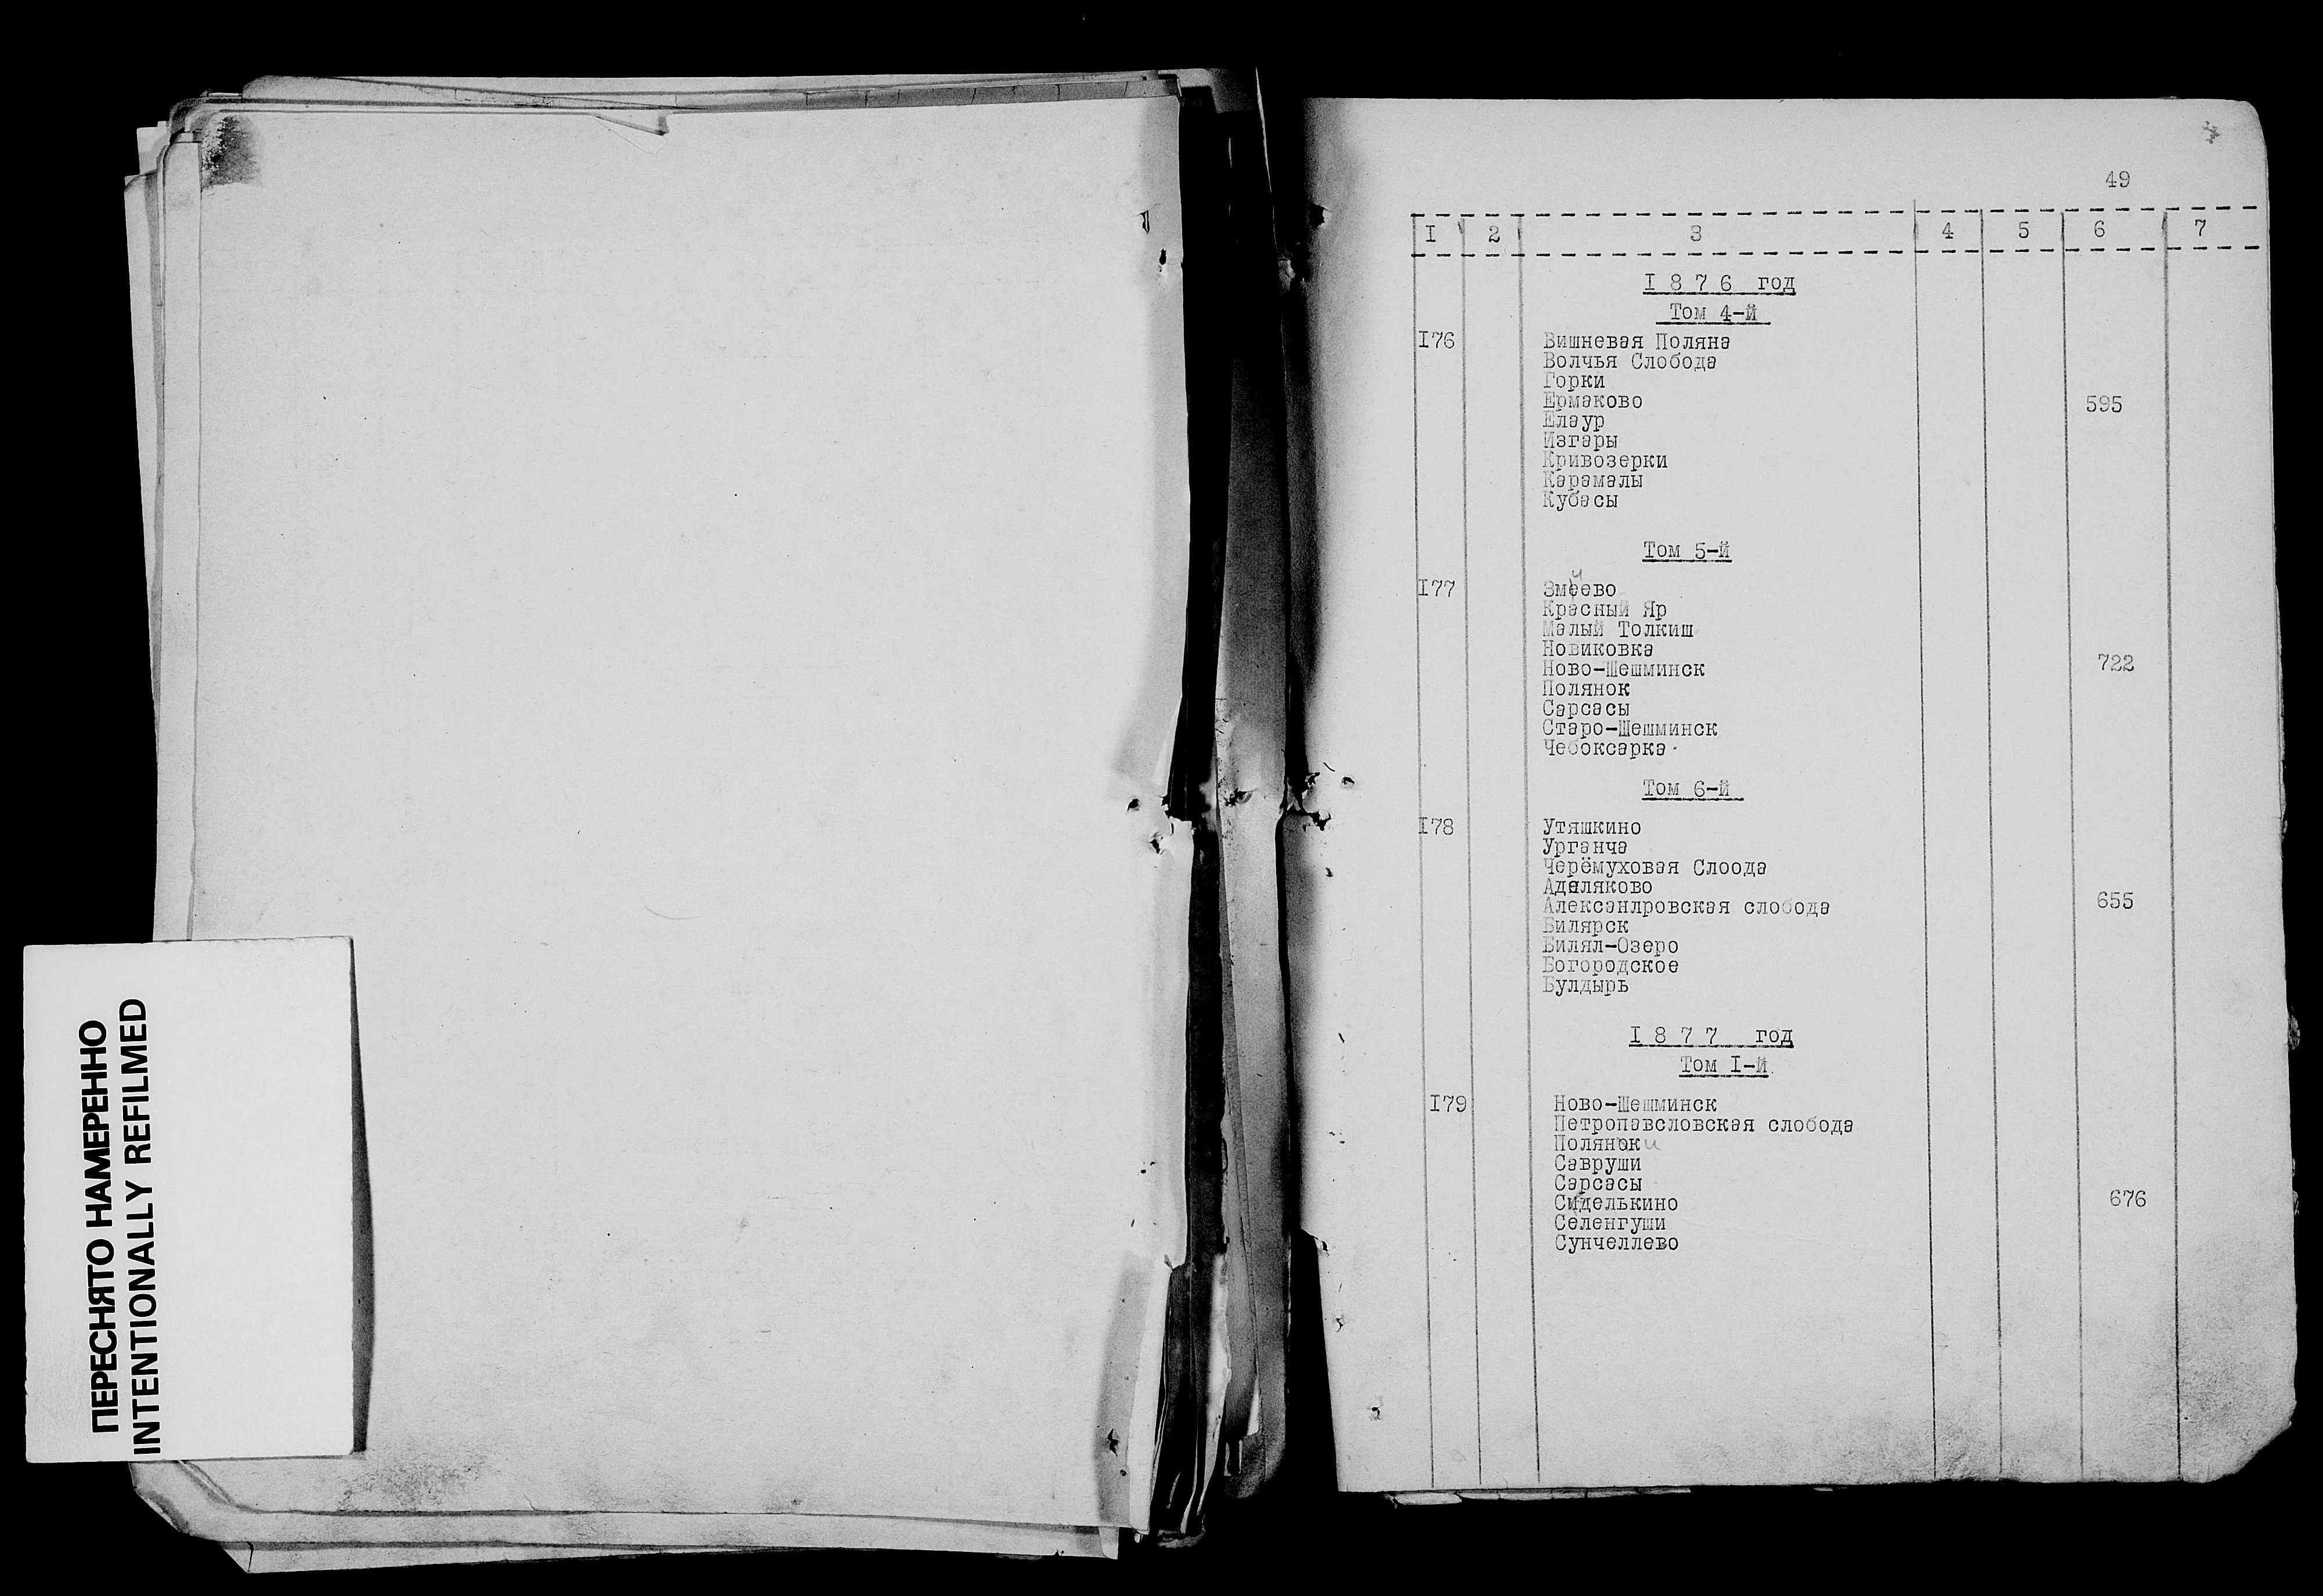 ПЕРЕСНЯТО НАМЕРЕННО
INTENTIONALLY REFILMED
49
I 2 3 4 5 6 7
I 8 7 6 год
Том 4-й
I76 Вишневая Поляна
Волчья Слобода
Горки
Ермаково 595
Елаур
Изгары
Кривозерки
Карамалы
Кубасы
Том 5-й
I77 Змеево
Красный Яр
Малый Толкиш
Новиковка
Ново-Шешминск 722
Полянок
Сарсасы
Старо-Шешминск
Чебоксарка
Том 6-й
I78 Утяшкино
Урганча
Черёмуховая Слоода
Аделяково
Алексанлровская слобода 655
Билярск
Билял-Озеро
Богородское
Булдырь
I 8 7 7 год
Том I-й
I79 Ново-Шешминск
Петропавсловская слобода
Полянки
Савруши
Сарсасы
Сиделькино 676
Селенгуши
Сунчеллево